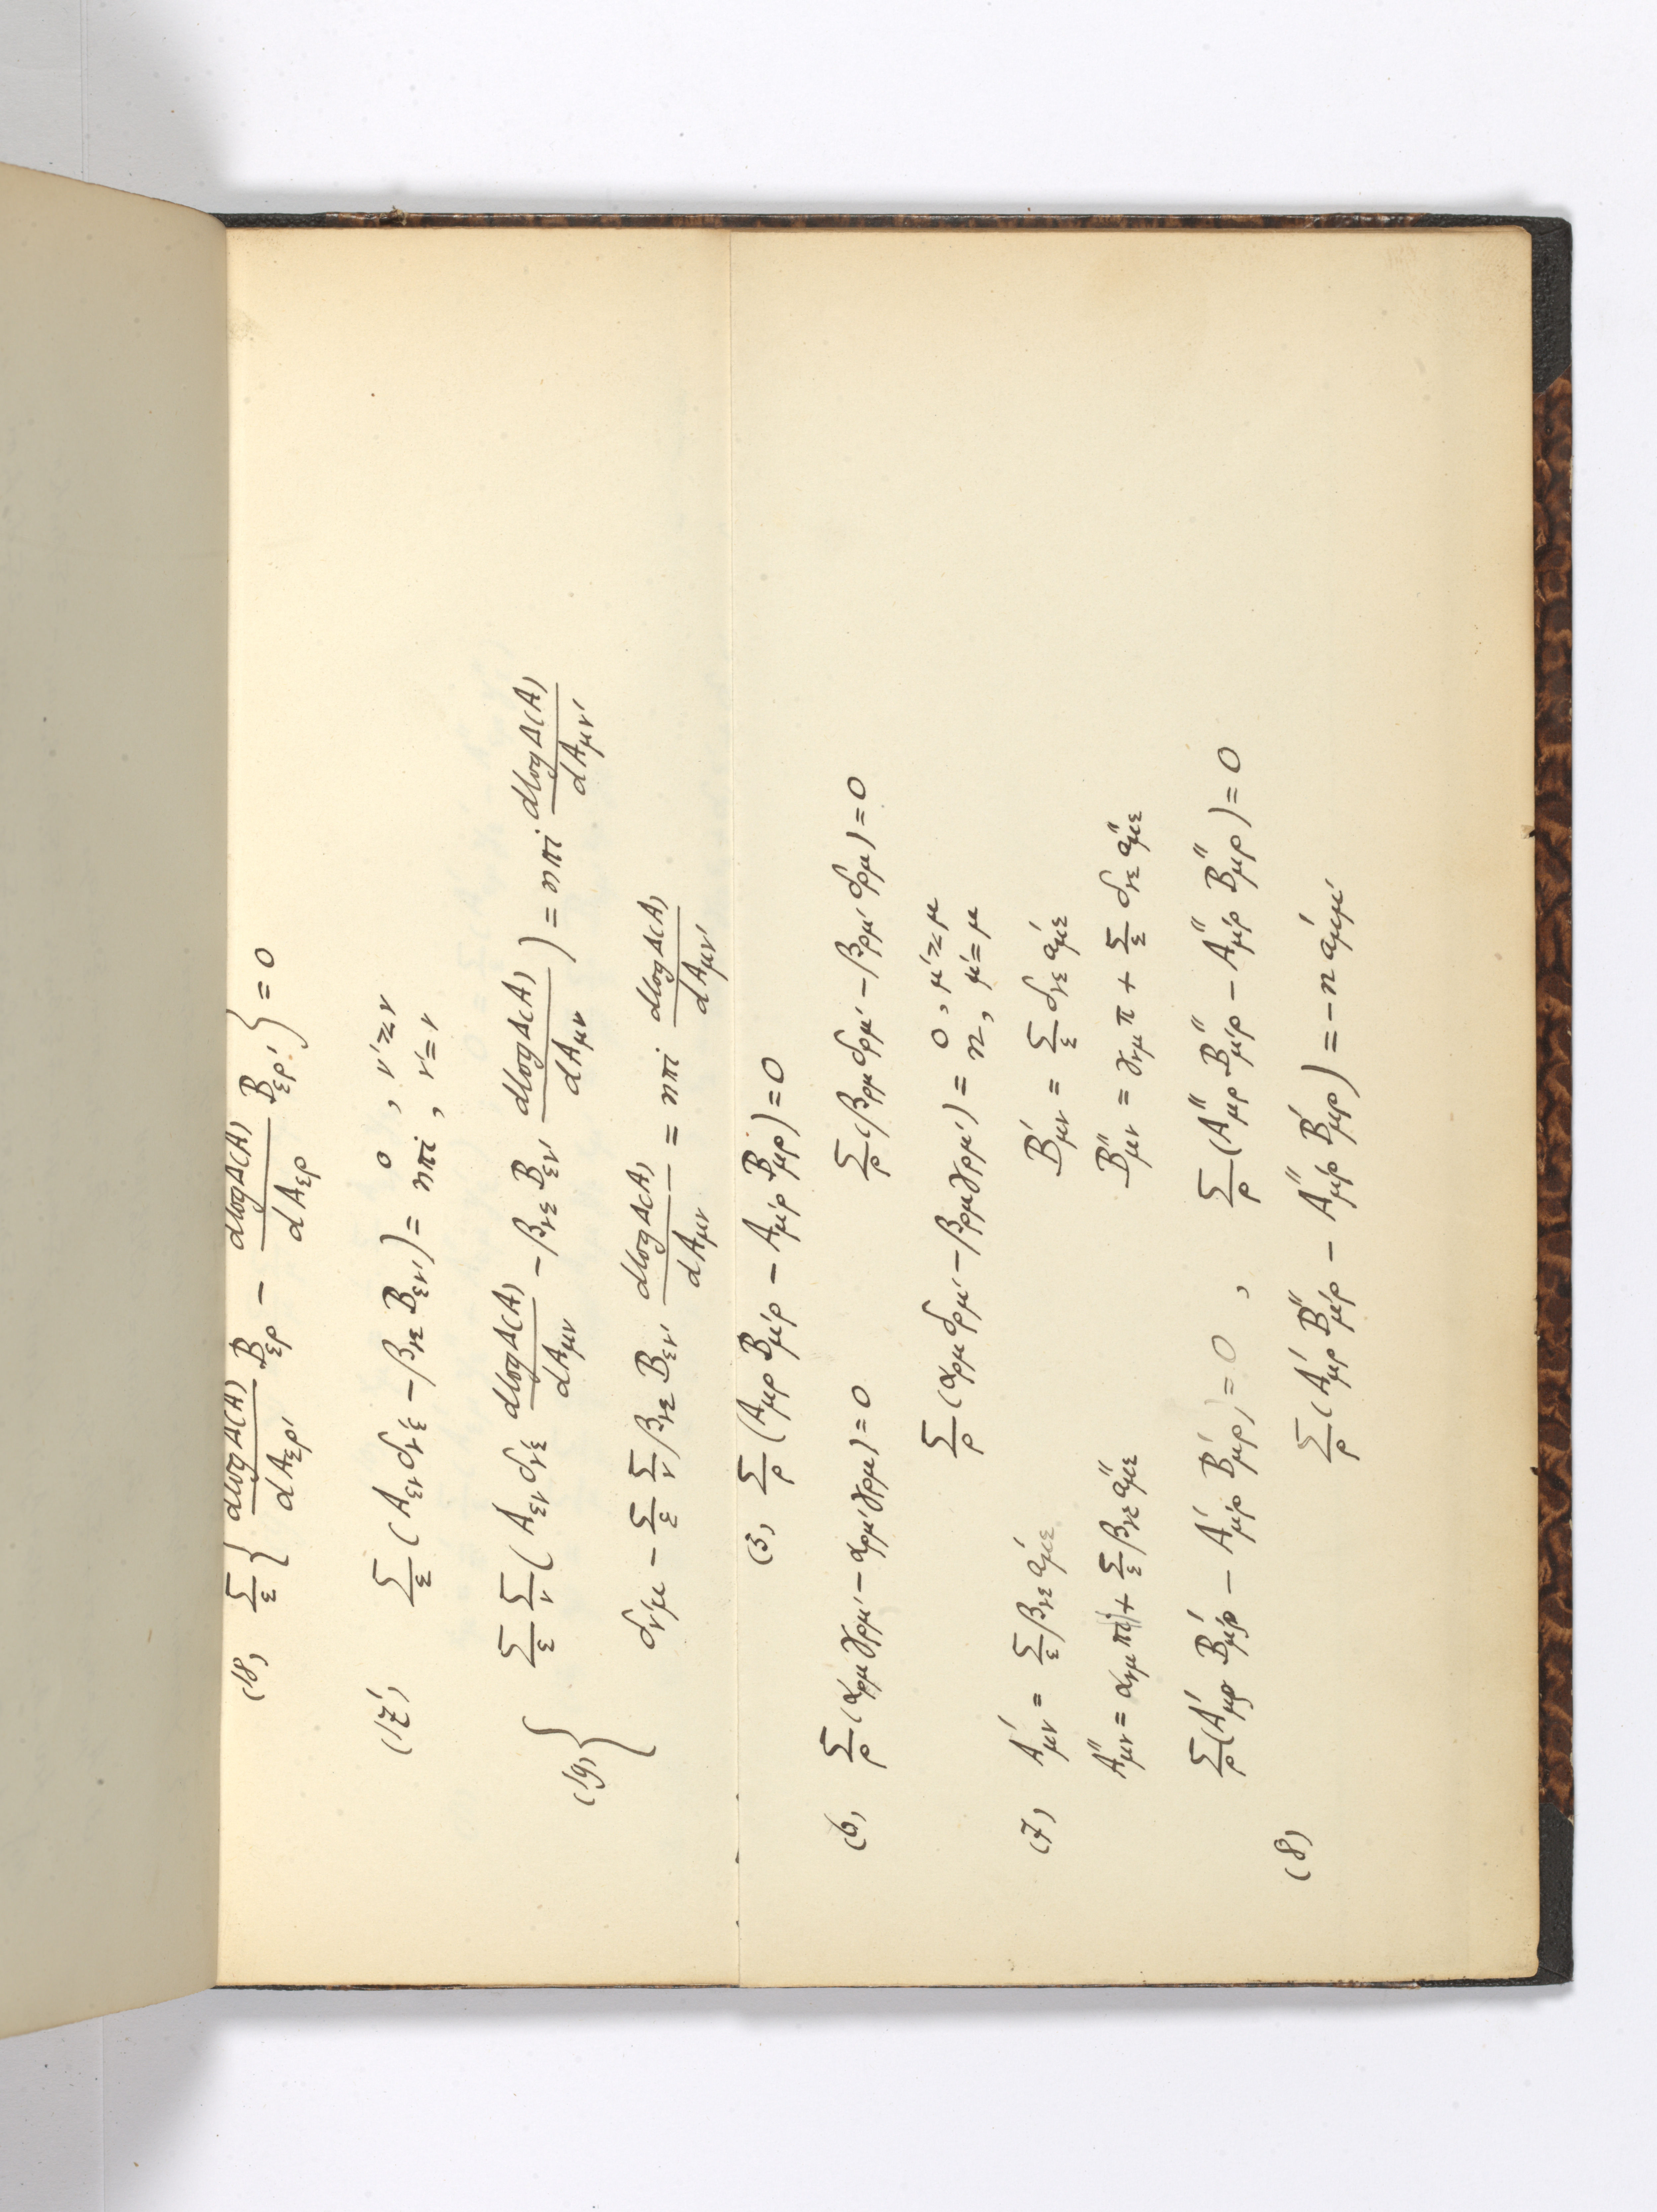 (18) Σ_ε { dlogΔ(A)/dA_ερ' B_ερ − dlogΔ(A)/dA_ερ B_ερ' } = 0
(17') Σ_ε (A_εν δ_ν'ε − β_νε B_εν') = 0, ν'≷ν
nπi, ν'=ν
(19) { Σ_ε Σ_ν ( A_εν δ_ν'ε dlogΔ(A)/dA_μν − β_νε B_εν' dlogΔ(A)/dA_μν ) = nπi dlogΔ(A)/dA_μν'
δ_ν'μ − Σ_ε Σ_ν β_νε B_εν' dlogΔ(A)/dA_μν = nπi dlogΔ(A)/dA_μν'
(3) Σ_ρ (A_μρ B_μ'ρ − A_μ'ρ B_μρ) = 0
(6) Σ_ρ (α_ρμ γ_ρμ' − α_ρμ' γ_ρμ) = 0 Σ_ρ (β_ρμ δ_ρμ' − β_ρμ' δ_ρμ) = 0
Σ_ρ (α_ρμ δ_ρμ' − β_ρμ γ_ρμ') = 0, μ'≷μ
n, μ'=μ
(7) A'_μν = Σ_ε β_νε a'_με B'_μν = Σ_ε δ_νε a'_με
A''_μν = α_νμ πi + Σ_ε β_νε a''_με B''_μν = γ_νμ π + Σ_ε δ_νε a''_με
Σ_ρ (A'_μρ B'_μ'ρ − A'_μ'ρ B'_μρ) = 0 , Σ_ρ (A''_μρ B''_μ'ρ − A''_μ'ρ B''_μρ) = 0
(8) Σ_ρ (A'_μρ B''_μ'ρ − A''_μ'ρ B'_μρ) = −n a'_μμ'